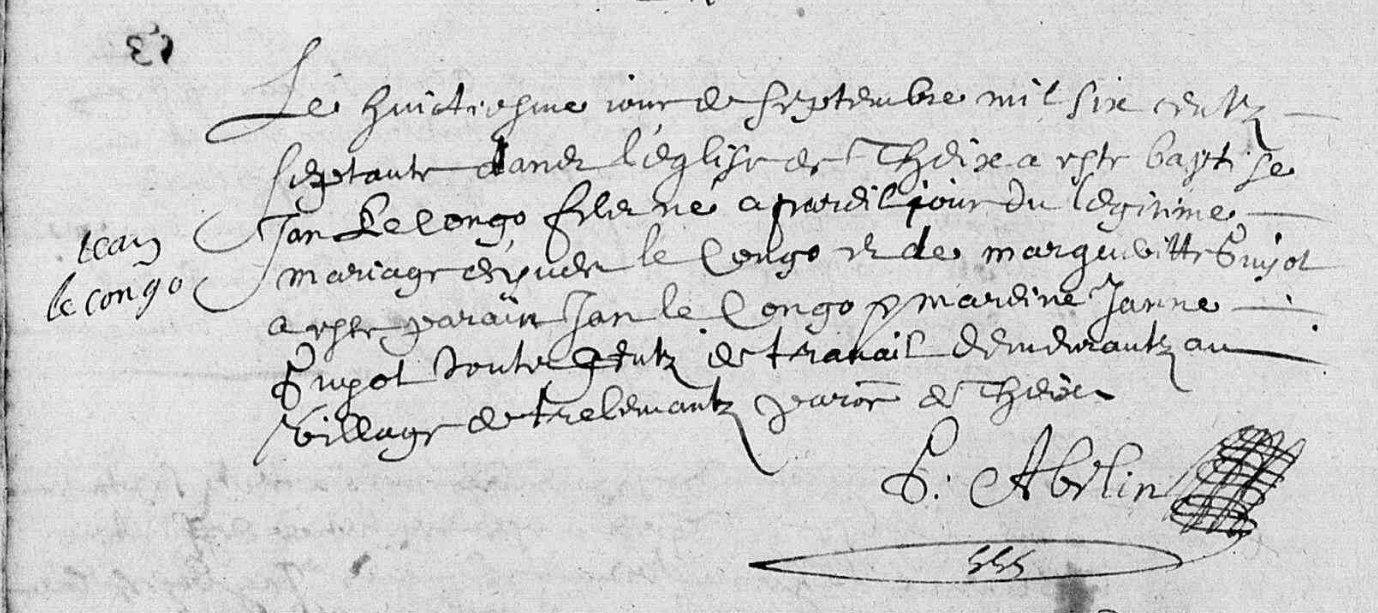 53
Le huictiesme iour de septembre mil six centz
septante dans l'eglise de Theix a este baptise
Jan Le Congo filz né a pareil jour du legitime
Jean
le congo
mariage d'yves le Congo et de margueritte Guyot
a este parain Jan le Congo & mareine Janne
Guyot toute gentz de travail demeurantz au
village de trelemantz paroe de Theix
P. Abelin